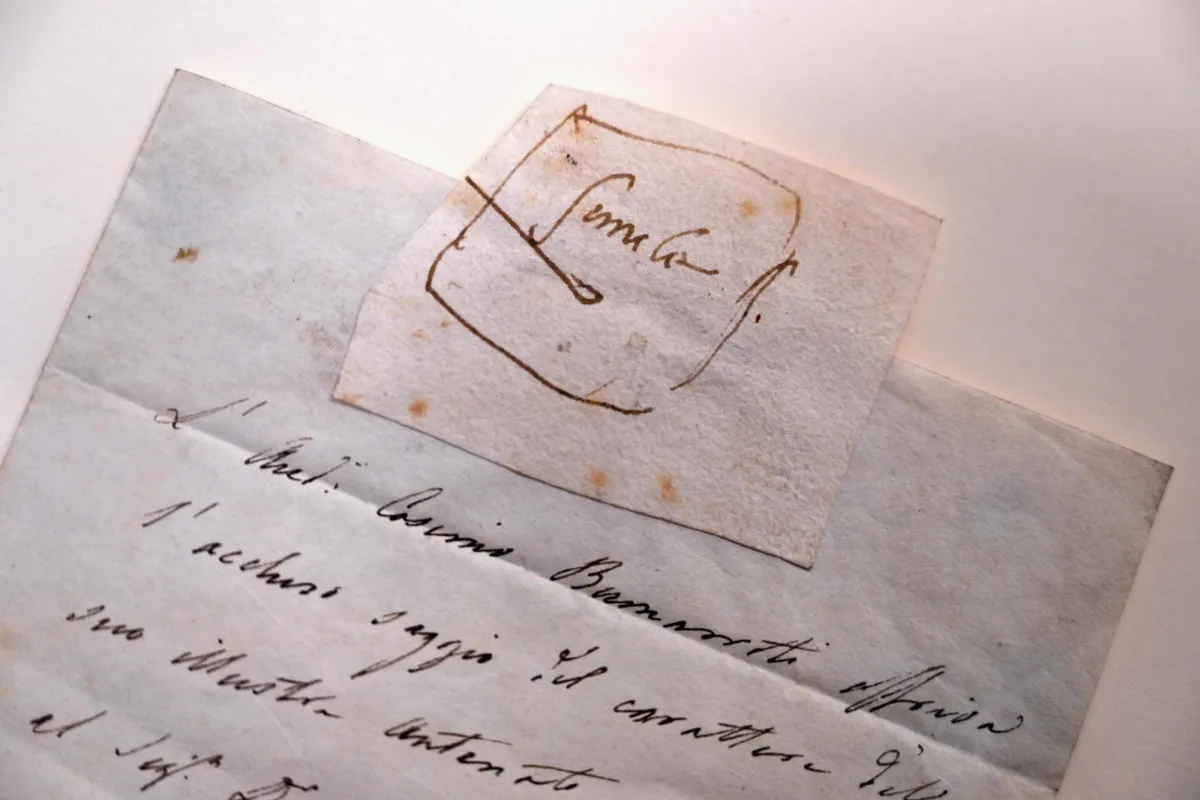 Simile
L'
Aved: Cosimo Buonarroti offriva
l'accluso saggio del carattere dell
suo illustre antenato
al Sigr D